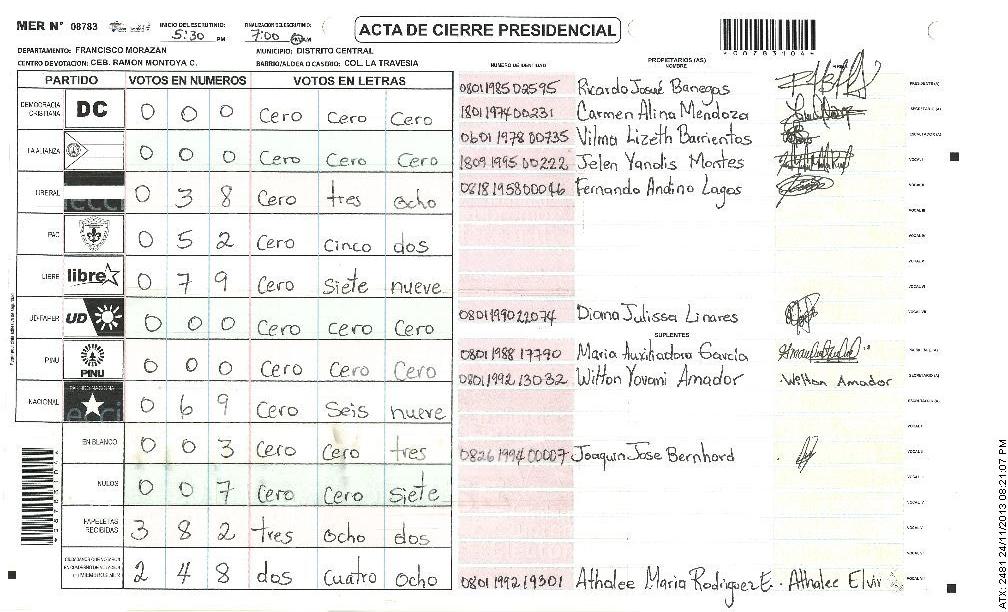 MER N° 08783
INICIO DEL ESCRUTINIO: 5:30 PM
FINALIZACION DEL ESCRUTINIO: 7:00 PM AM
ACTA DE CIERRE PRESIDENCIAL
*08783104*
DEPARTAMENTO: FRANCISCO MORAZAN
MUNICIPIO: DISTRITO CENTRAL
CENTRO DE VOTACION: CEB. RAMON MONTOYA C.
BARRIO/ALDEA O CASERIO: COL. LA TRAVESIA
PARTIDO VOTOS EN NUMEROS VOTOS EN LETRAS
DEMOCRACIA CRISTIANA DC 0 0 0 Cero Cero Cero
LA ALIANZA 0 0 0 Cero Cero Cero
LIBERAL 0 3 8 Cero tres ocho
PAC 0 5 2 Cero Cinco dos
LIBRE libre 0 7 9 Cero Siete nueve
UD-FAPER UD 0 0 0 Cero Cero Cero
PINU PINU 0 0 0 Cero Cero Cero
NACIONAL 0 6 9 Cero Seis nueve
EN BLANCO 0 0 3 Cero Cero tres
NULOS 0 0 7 Cero Cero Siete
PAPELETAS RECIBIDAS 3 8 2 tres Ocho dos
2 4 8 dos Cuatro Ocho
NUMERO DE IDENTIDAD
PROPIETARIOS (AS)
NOMBRE
FIRMA
0801198502595 Ricardo Josué Banegas PRESIDENTE (A)
1801197400231 Carmen Alina Mendoza SECRETARIO (A)
0601197800735 Vilma Lizeth Barrientos ESCRUTADOR (A)
1809199500222 Jelen Yanolis Montes VOCAL I
0818195800046 Fernando Andino Lagos VOCAL II
VOCAL III
VOCAL IV
VOCAL V
VOCAL VI
0801199022074 Diana Julissa Linares VOCAL VII
SUPLENTES
0801198817790 Maria Auxiliadora García
0801199213032 Wilton Yovani Amador Welton Amador SECRETARIO (A)
ESCRUTADOR (A)
VOCAL I
0826199400007 Joaquin Jose Bernhard VOCAL II
0801199219301 Athalee Maria Rodriguez E. Athalee Elvir
24/11/2013 08:21:07 PM